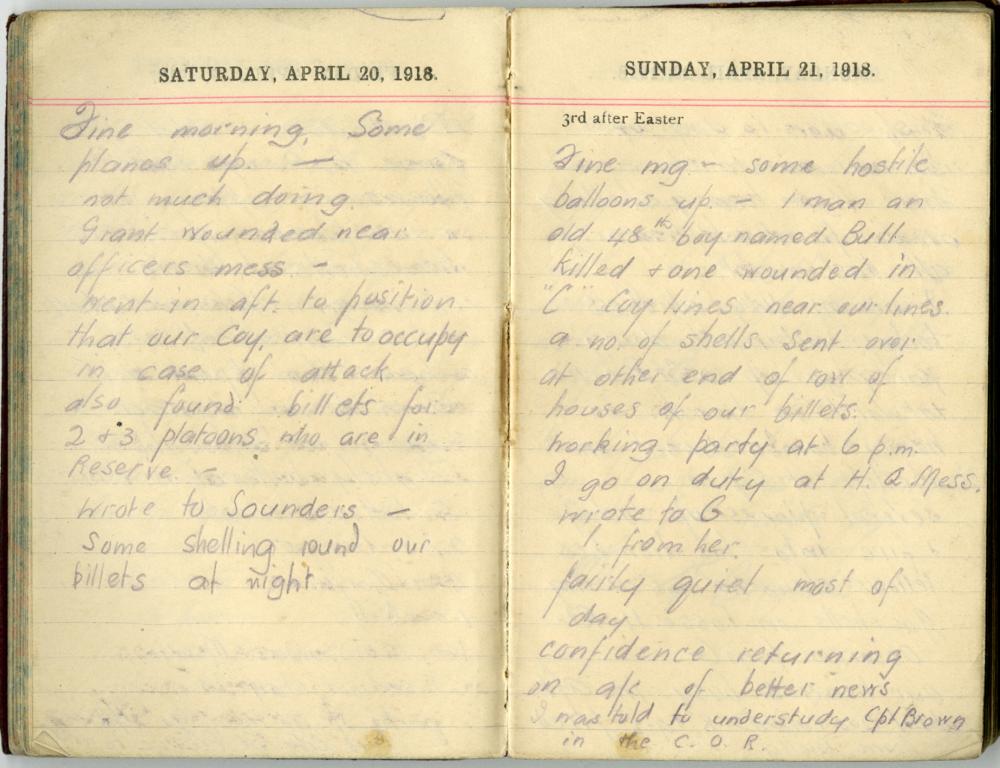 SATURDAY, APRIL 20, 1918.
Fine morning. Some
planes up. —
not much doing.
Grant wounded near
officers mess. —
Went in aft. to position
that our Coy. are to occupy
in case of attack
also found billets for
2 + 3 platoons who are in
Reserve. —
Wrote to Saunders —
Some shelling round our
billets at night.
SUNDAY, APRIL 21, 1918.
3rd after Easter
Fine mg — some hostile
balloons up. — 1 man an
old 48th boy named Butt
killed + one wounded in
"C" Coy lines near our lines.
a no. of shells sent over
at other end of row of
houses of our billets.
Working party at 6 p.m.
I go on duty at H. Q Mess.
Wrote to G
1 from her.
fairly quiet most of
day
confidence returning
on a/c of better news
I was told to understudy Cpl Brown
in the C. O. R.